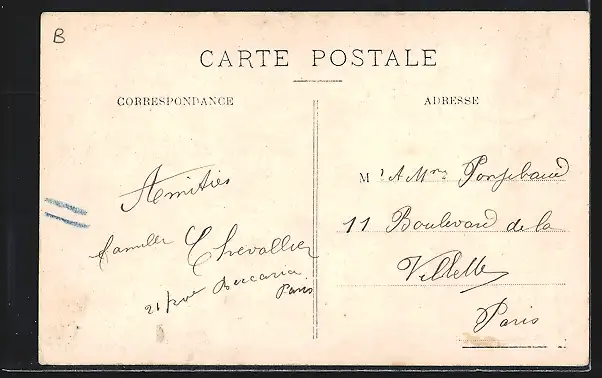 B
CARTE POSTALE
CORRESPONDANCE
Amitiés
Famille Chevallier
21 rue Beccaria
Paris
ADRESSE
M r & Mme
11 Boulevard de la
Villette
Paris